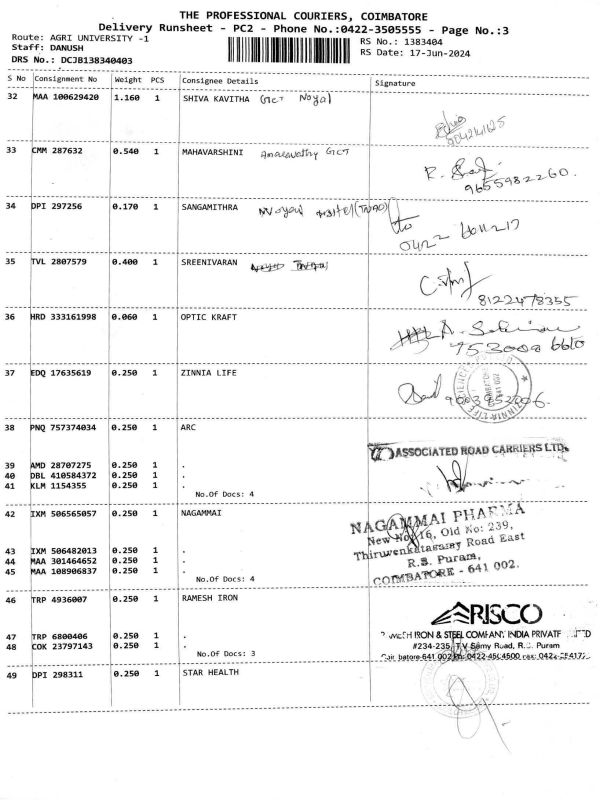 THE PROFESSIONAL COURIERS, COIMBATORE
Delivery Runsheet - PC2 - Phone No.:0422-3505555 - Page No.:3
Route: AGRI UNIVERSITY -1
RS No.: 1383404
Staff: DANUSH
RS Date: 17-Jun-2024
DRS No.: DCJB138340403
S No Consignment No Weight PCS Consignee Details Signature
32 MAA 100629420 1.160 1 SHIVA KAVITHA GCT
9042141125
33 CMM 287632 0.540 1 MAHAVARSHINI GCT
9655982260.
34 DPI 297256 0.170 1 SANGAMITHRA
0422 6611217
35 TVL 2807579 0.400 1 SREENIVARAN
8122478355
36 HRD 333161998 0.060 1 OPTIC KRAFT
953008 6610
37 EDQ 17635619 0.250 1 ZINNIA LIFE
38 PNQ 757374034 0.250 1 ARC
ASSOCIATED ROAD CARRIERS LTD.
39 AMD 28707275 0.250 1 .
40 DBL 410584372 0.250 1 .
41 KLM 1154355 0.250 1 .
No.Of Docs: 4
42 IXM 506565057 0.250 1 NAGAMMAI
NAGAMMAI PHARMA
New No: 16, Old No: 239,
Thiruvenkatasamy Road East
R.S. Puram,
COIMBATORE - 641 002.
43 IXM 506482013 0.250 1 .
44 MAA 301464652 0.250 1 .
45 MAA 108906837 0.250 1 .
No.Of Docs: 4
46 TRP 4936007 0.250 1 RAMESH IRON
RISCO
RAMESH IRON & STEEL COMPANY INDIA PRIVATE LIMITED
#234-235, T.V Samy Road, R.S. Puram
47 TRP 6800406 0.250 1 .
48 COK 23797143 0.250 1 .
No.Of Docs: 3
49 DPI 298311 0.250 1 STAR HEALTH